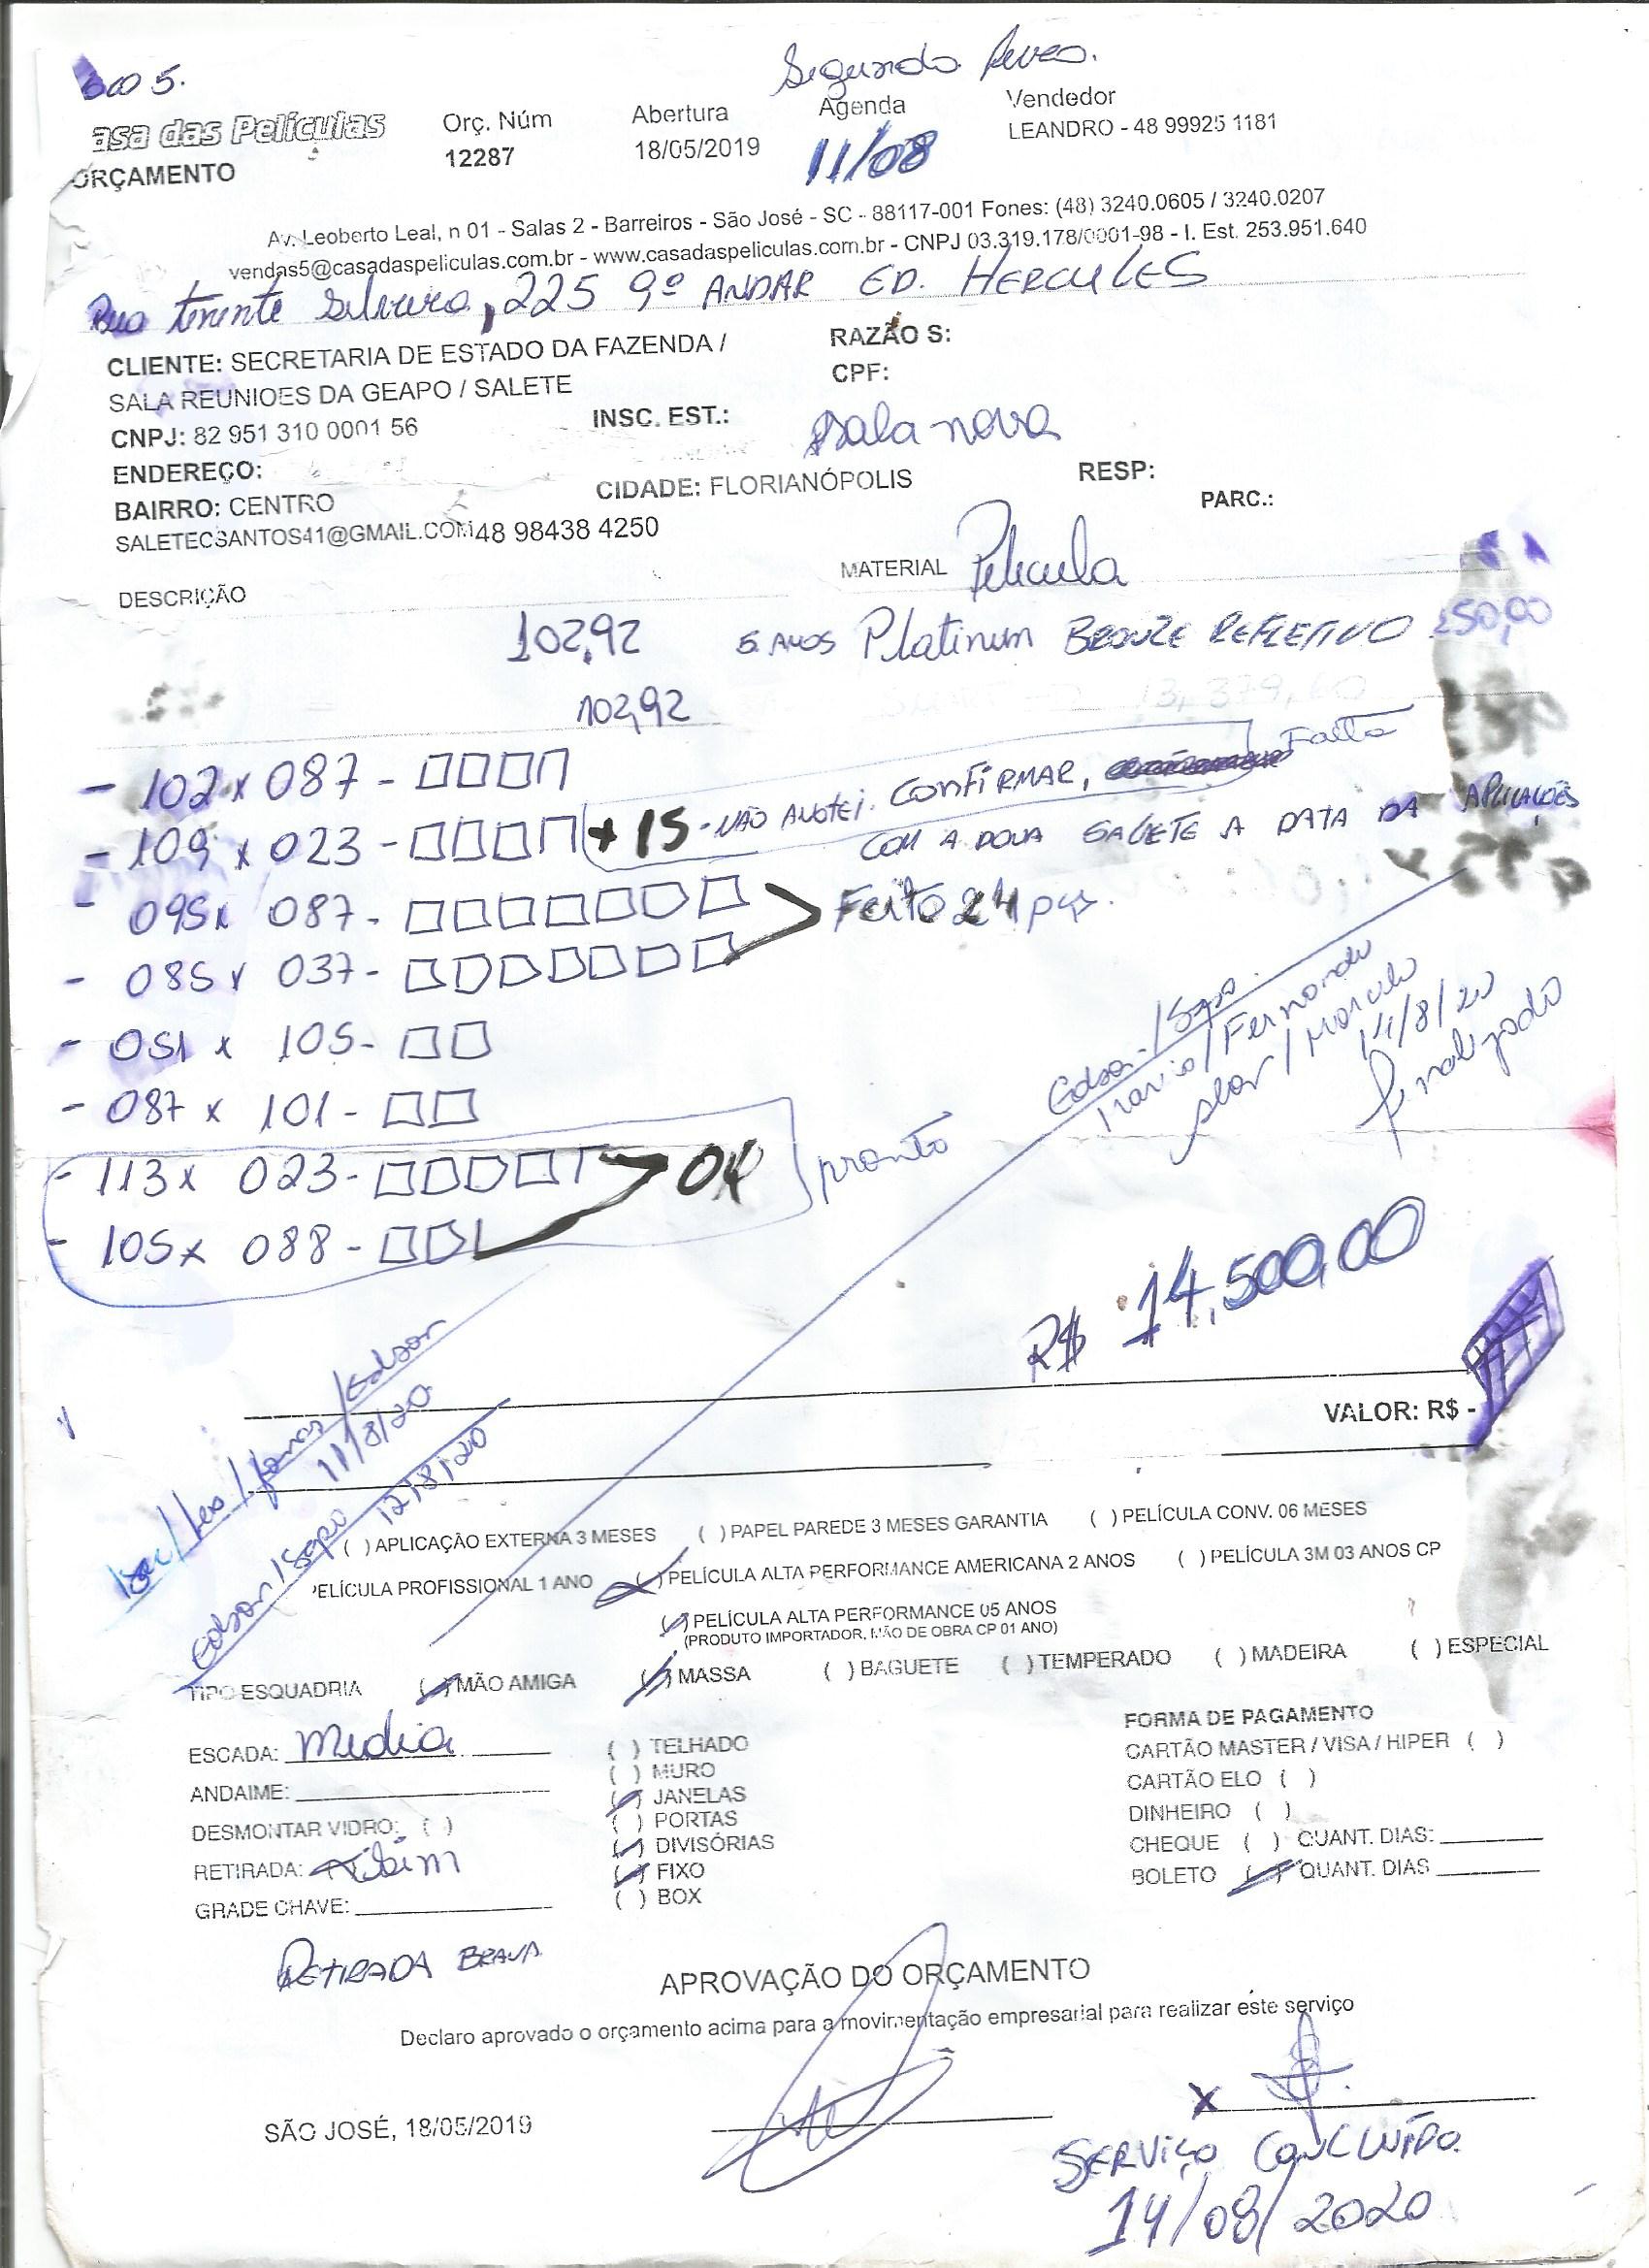 Segundo
005.
asa das Películas
Orç. Núm
Abertura
Agenda
Vendedor
12287
18/05/2019
11/08
LEANDRO - 48 99925 1181
ORÇAMENTO
Av. Leoberto Leal, n 01 - Salas 2 - Barreiros - São José - SC - 88117-001 Fones: (48) 3240.0605 / 3240.0207
vendas5@casadaspeliculas.com.br - www.casadaspeliculas.com.br - CNPJ 03.319.178/0001-98 - I. Est. 253.951.640
Rua tenente Silveira, 225 9º ANDAR ED. HERCULES
CLIENTE: SECRETARIA DE ESTADO DA FAZENDA /
RAZÃO S:
SALA REUNIOES DA GEAPO / SALETE
CPF:
CNPJ: 82 951 310 0001 56
INSC. EST.:
sala nova
ENDEREÇO:
BAIRRO: CENTRO
CIDADE: FLORIANÓPOLIS
RESP:
PARC.:
SALETECSANTOS41@GMAIL.COM 48 98438 4250
DESCRIÇÃO
MATERIAL Pelicula
102,92 5 ANOS Platinum BRONZE REFLETIVO 250,00
13,379,60
102,92
- 102 x 087 -
- 109 x 023 - + 15 - NÃO ANOTEI. CONFIRMAR, Falta
COM A DONA SALETE A DATA DA APLICAÇÕES
- 095 x 087 -
Feito 24 pçs.
- 085 x 037 -
- 051 x 105 -
- 087 x 101 -
- 113 x 023 - OK pronto
- 105 x 088 -
Edson / Sapo
/ Fernando
/ Marcelo
14/8/20
finalizado
R$ 14,500,00
VALOR: R$ -
/ Leo / Jonas / Edson
11/8/20
Edson / Sapo 12/8/20
( ) APLICAÇÃO EXTERNA 3 MESES ( ) PAPEL PAREDE 3 MESES GARANTIA ( ) PELÍCULA CONV. 06 MESES
PELÍCULA PROFISSIONAL 1 ANO ( ) PELÍCULA ALTA PERFORMANCE AMERICANA 2 ANOS ( ) PELÍCULA 3M 03 ANOS CP
( ) PELÍCULA ALTA PERFORMANCE 05 ANOS
(PRODUTO IMPORTADOR, MÃO DE OBRA CP 01 ANO)
TIPO ESQUADRIA ( ) MÃO AMIGA ( ) MASSA ( ) BAGUETE ( ) TEMPERADO ( ) MADEIRA ( ) ESPECIAL
ESCADA: media
ANDAIME:
DESMONTAR VIDRO: ( )
RETIRADA: sim
GRADE CHAVE:
( ) TELHADO
( ) MURO
( ) JANELAS
( ) PORTAS
( ) DIVISÓRIAS
( ) FIXO
( ) BOX
FORMA DE PAGAMENTO
CARTÃO MASTER / VISA / HIPER ( )
CARTÃO ELO ( )
DINHEIRO ( )
CHEQUE ( ) QUANT. DIAS:
BOLETO ( ) QUANT. DIAS
RETIRADA BRAVA
APROVAÇÃO DO ORÇAMENTO
Declaro aprovado o orçamento acima para a movimentação empresarial para realizar este serviço
X
SÃO JOSÉ, 18/05/2019
SERVIÇO CONCLUÍDO
14/08/2020